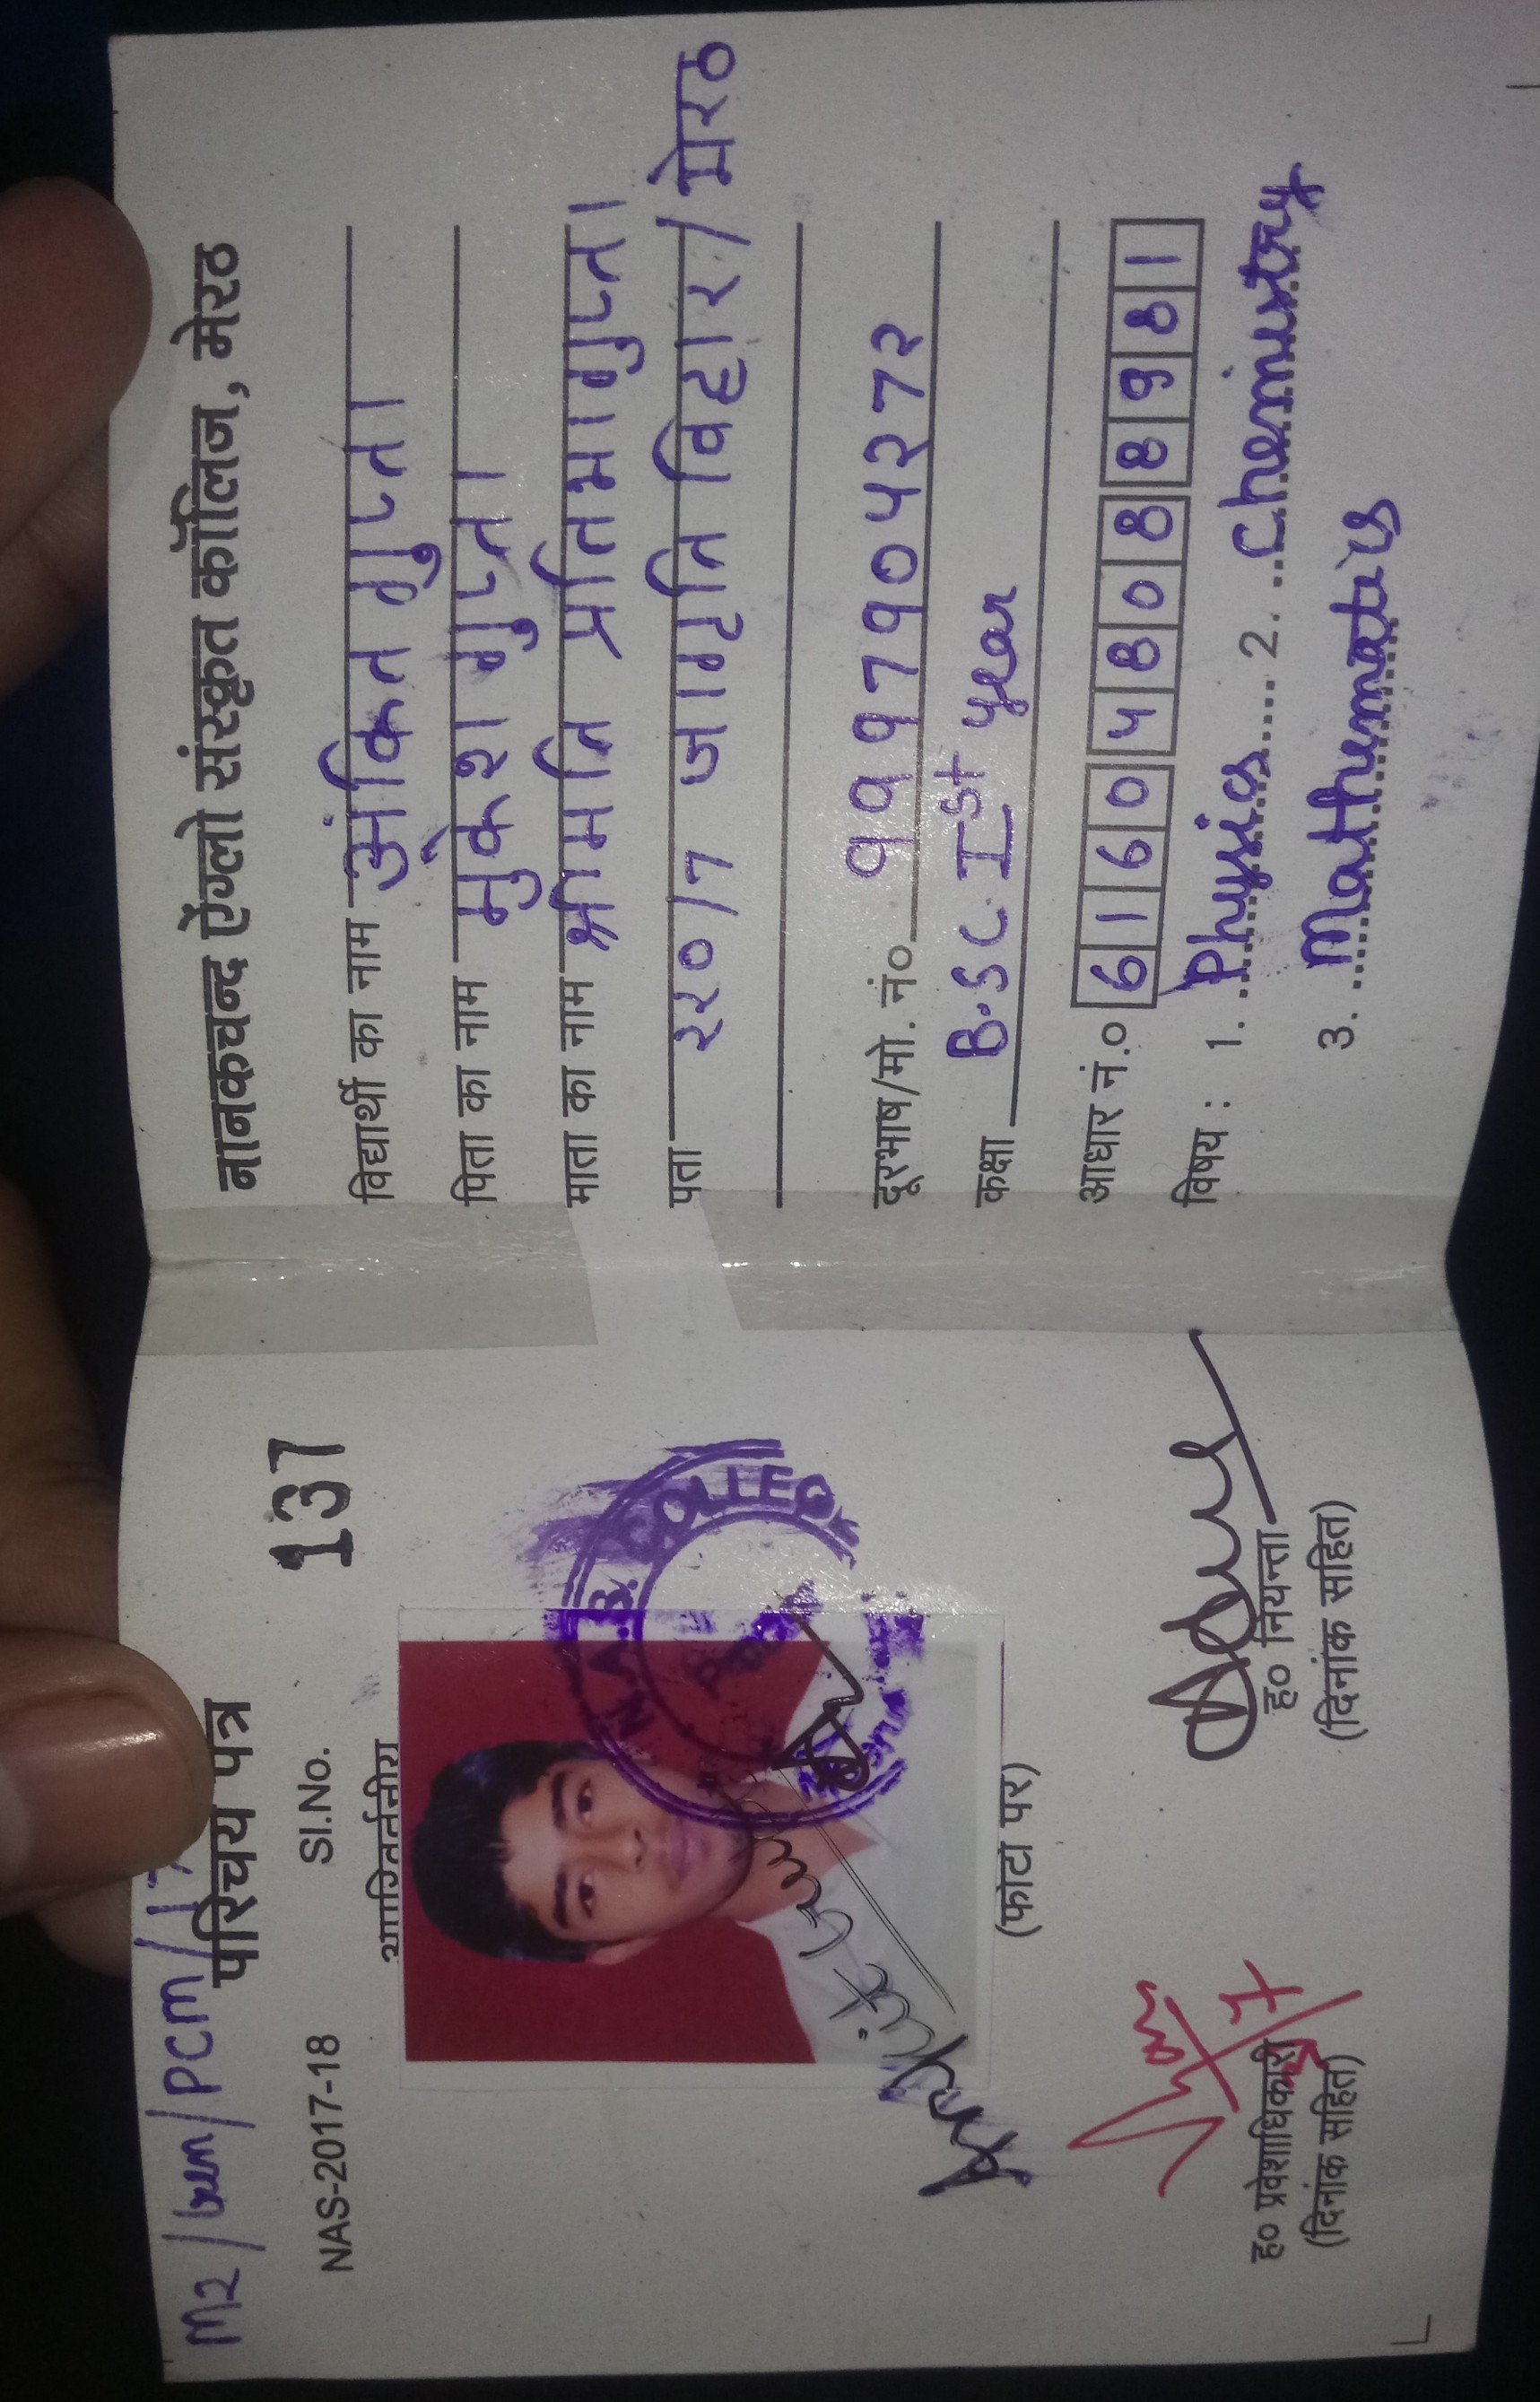 M2/Gen/PCM/17
परिचय पत्र
NAS-2017-18 Sl.No. 137
अपरिवर्तनीय
N.A.S. COLLEGE
Ankit
(फोटो पर)
ह० प्रवेशाधिकारी
(दिनांक सहित)
ह० नियन्ता
(दिनांक सहित)
नानकचन्द ऐंग्लो संस्कृत कॉलिज, मेरठ
विद्यार्थी का नाम अंकित गुप्ता
पिता का नाम मुकेश गुप्ता
माता का नाम श्रीमति प्रतिमा गुप्ता
पता २२०/7 जाग्रति विहार/मेरठ
दूरभाष/मो. नं०
कक्षा B.Sc Ist year
आधार नं.० 616045808898 1
विषय : 1. Physics 2. Chemistry
3. Mathematics